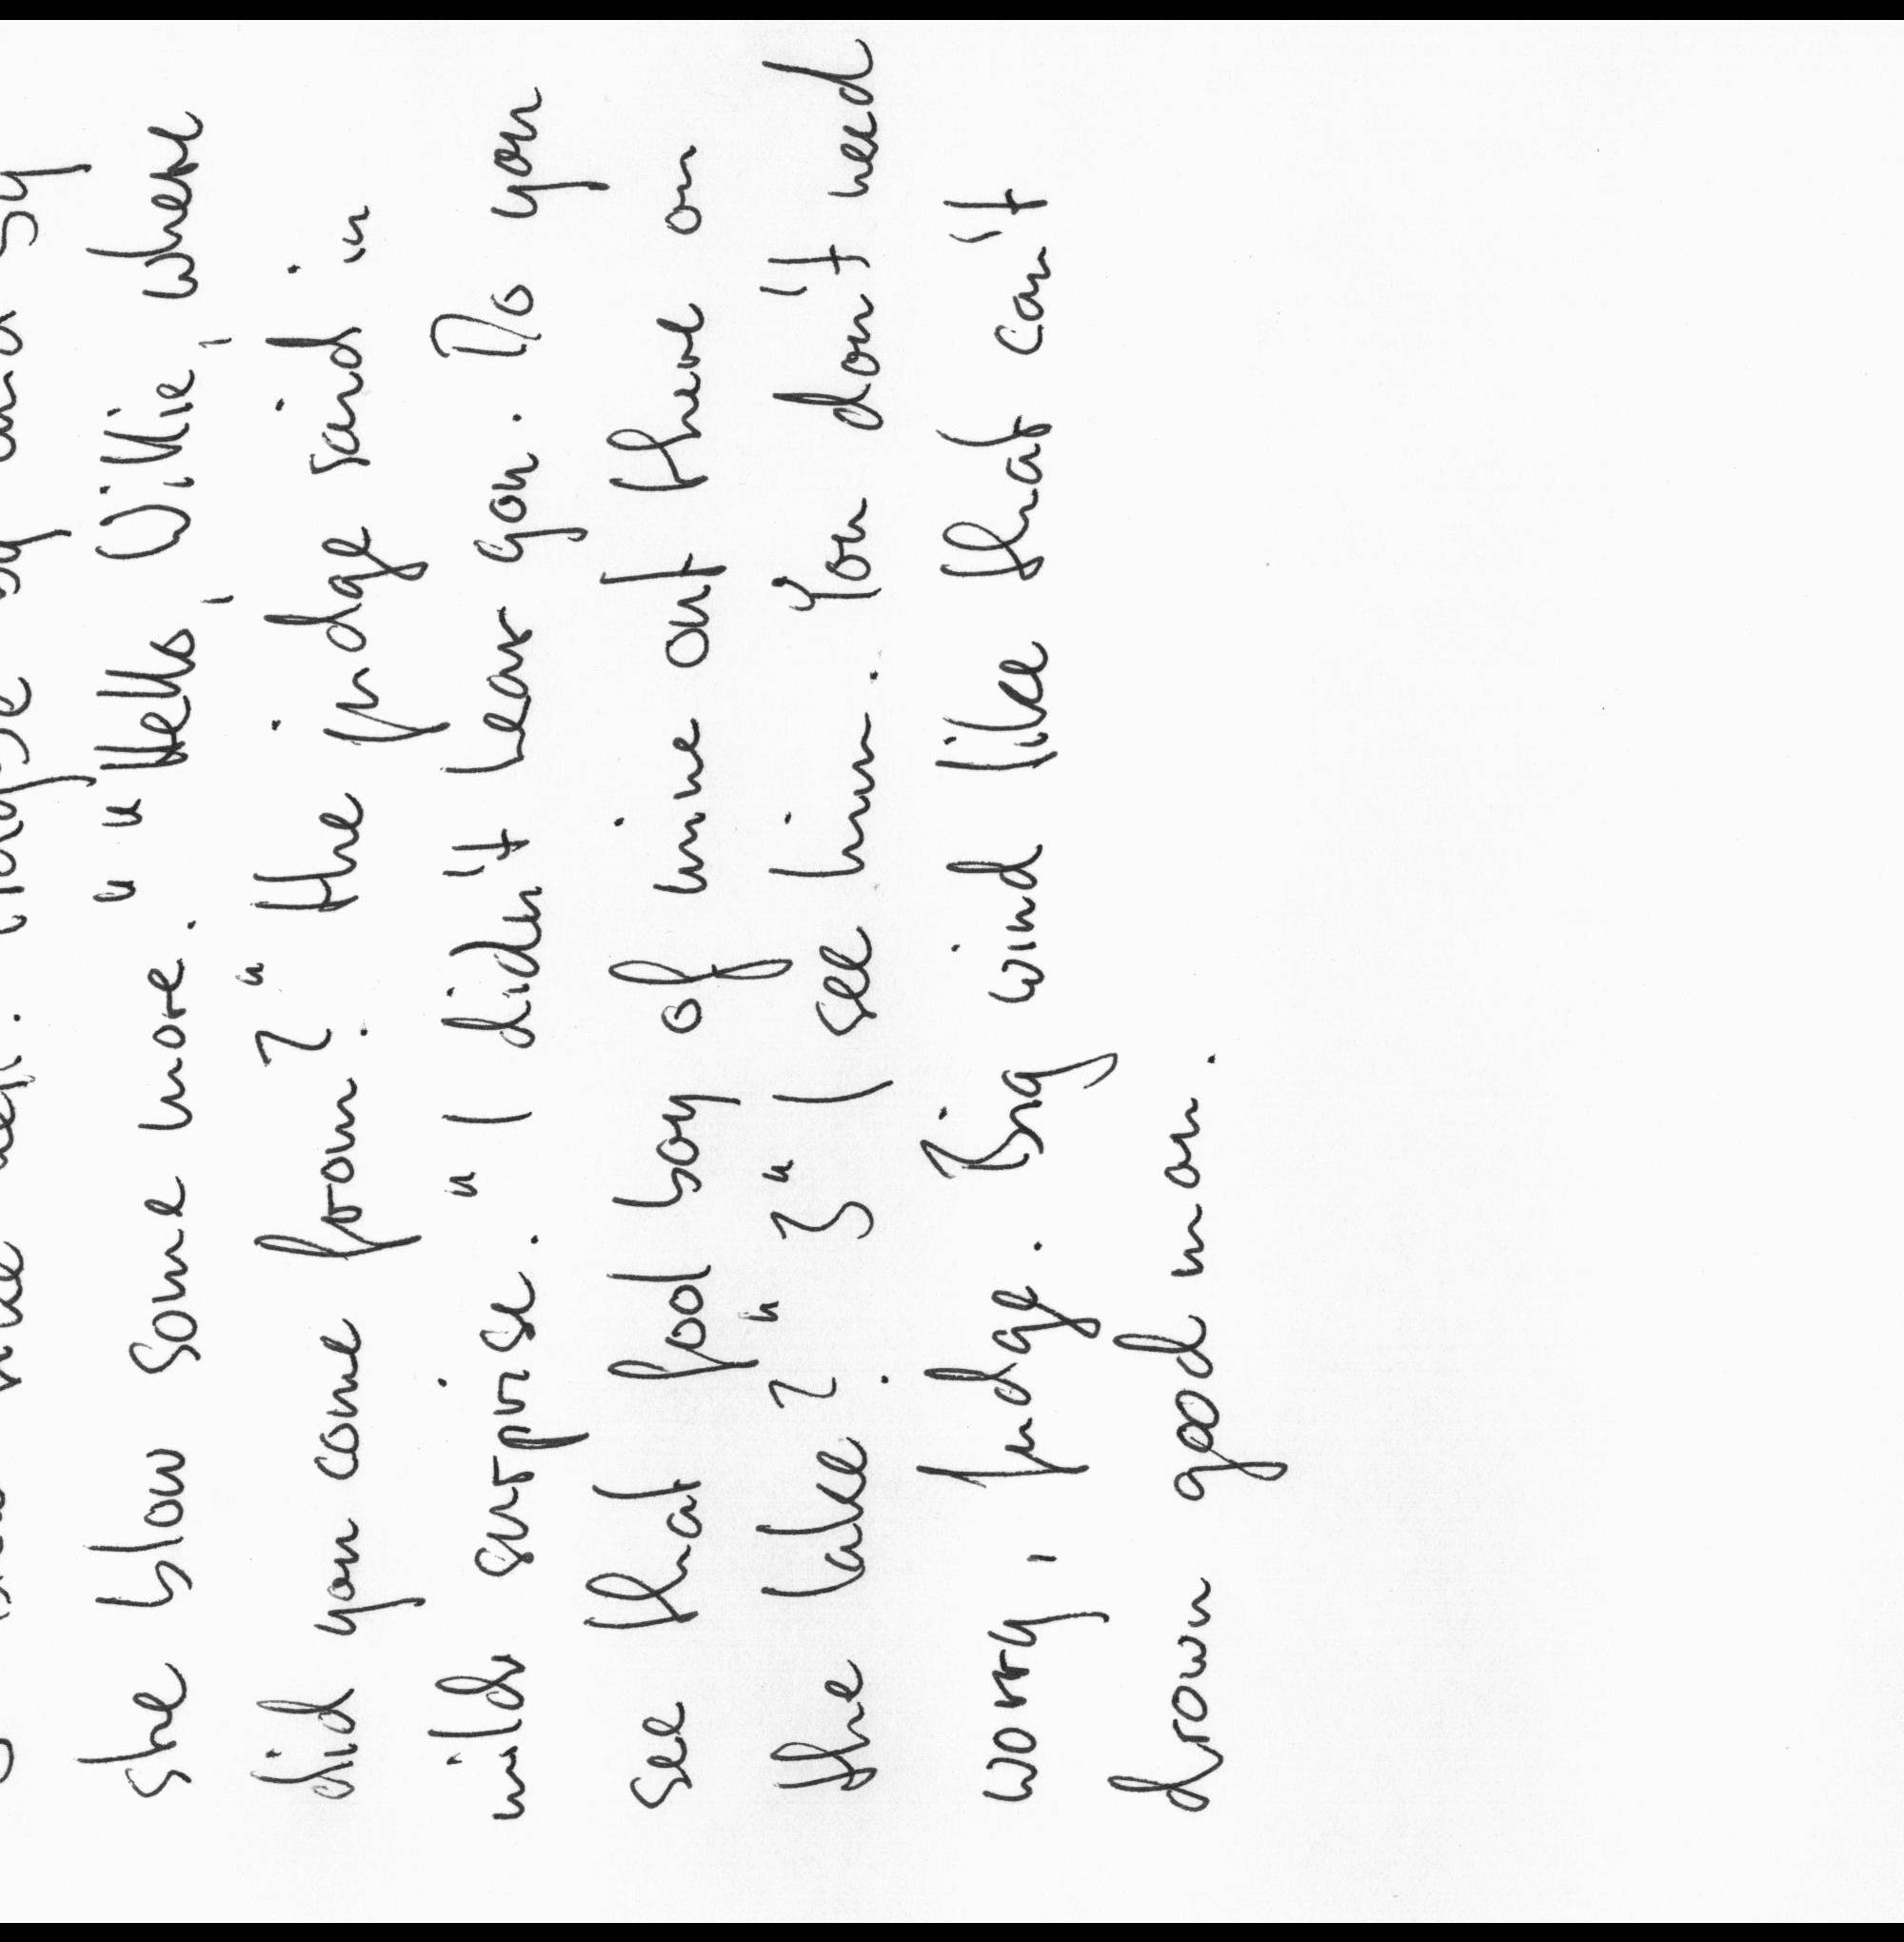 by and by
she blow some more." "Hello, Willie, where
did you come from?" the judge said in
mild surprise. "I didn't hear you. Do you
see that fool boy of mine out there on
the lake?" "I see him. You don't need
worry, Judge. Big wind like that can't
drown good man.